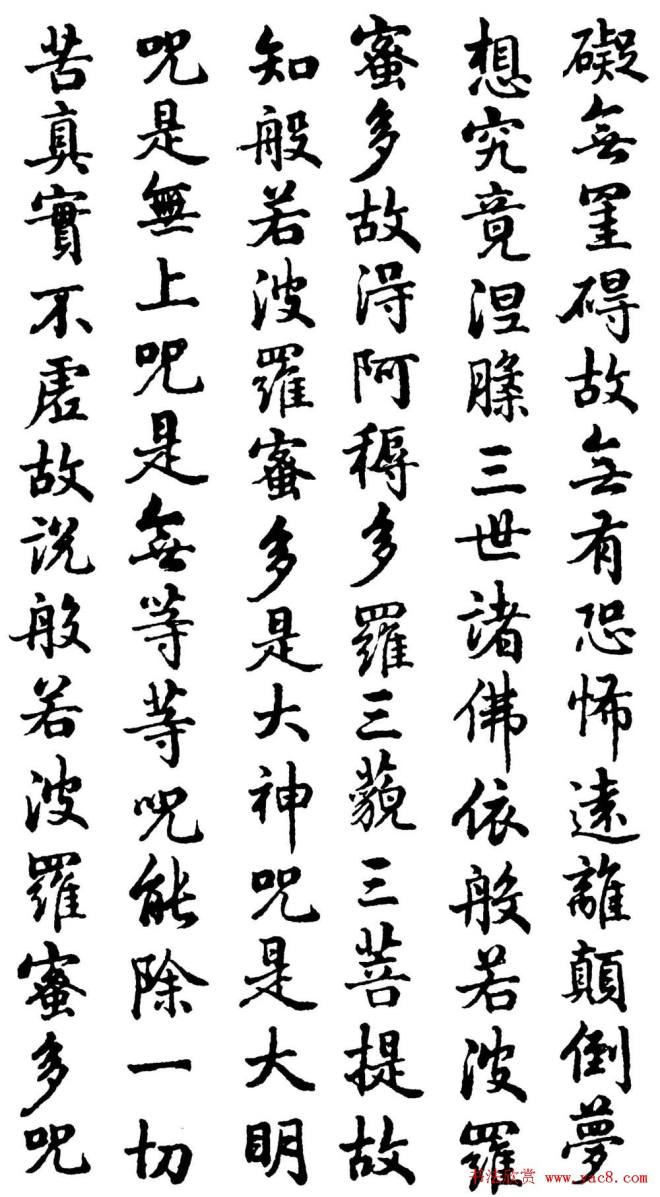 礙無罣碍故無有恐怖遠離顛倒夢
想究竟涅槃三世諸佛依般若波羅
蜜多故得阿耨多羅三藐三菩提故
知般若波羅蜜多是大神咒是大明
咒是無上咒是無等等咒能除一切
苦真實不虛故説般若波羅蜜多咒
书法欣赏 www.yac8.com